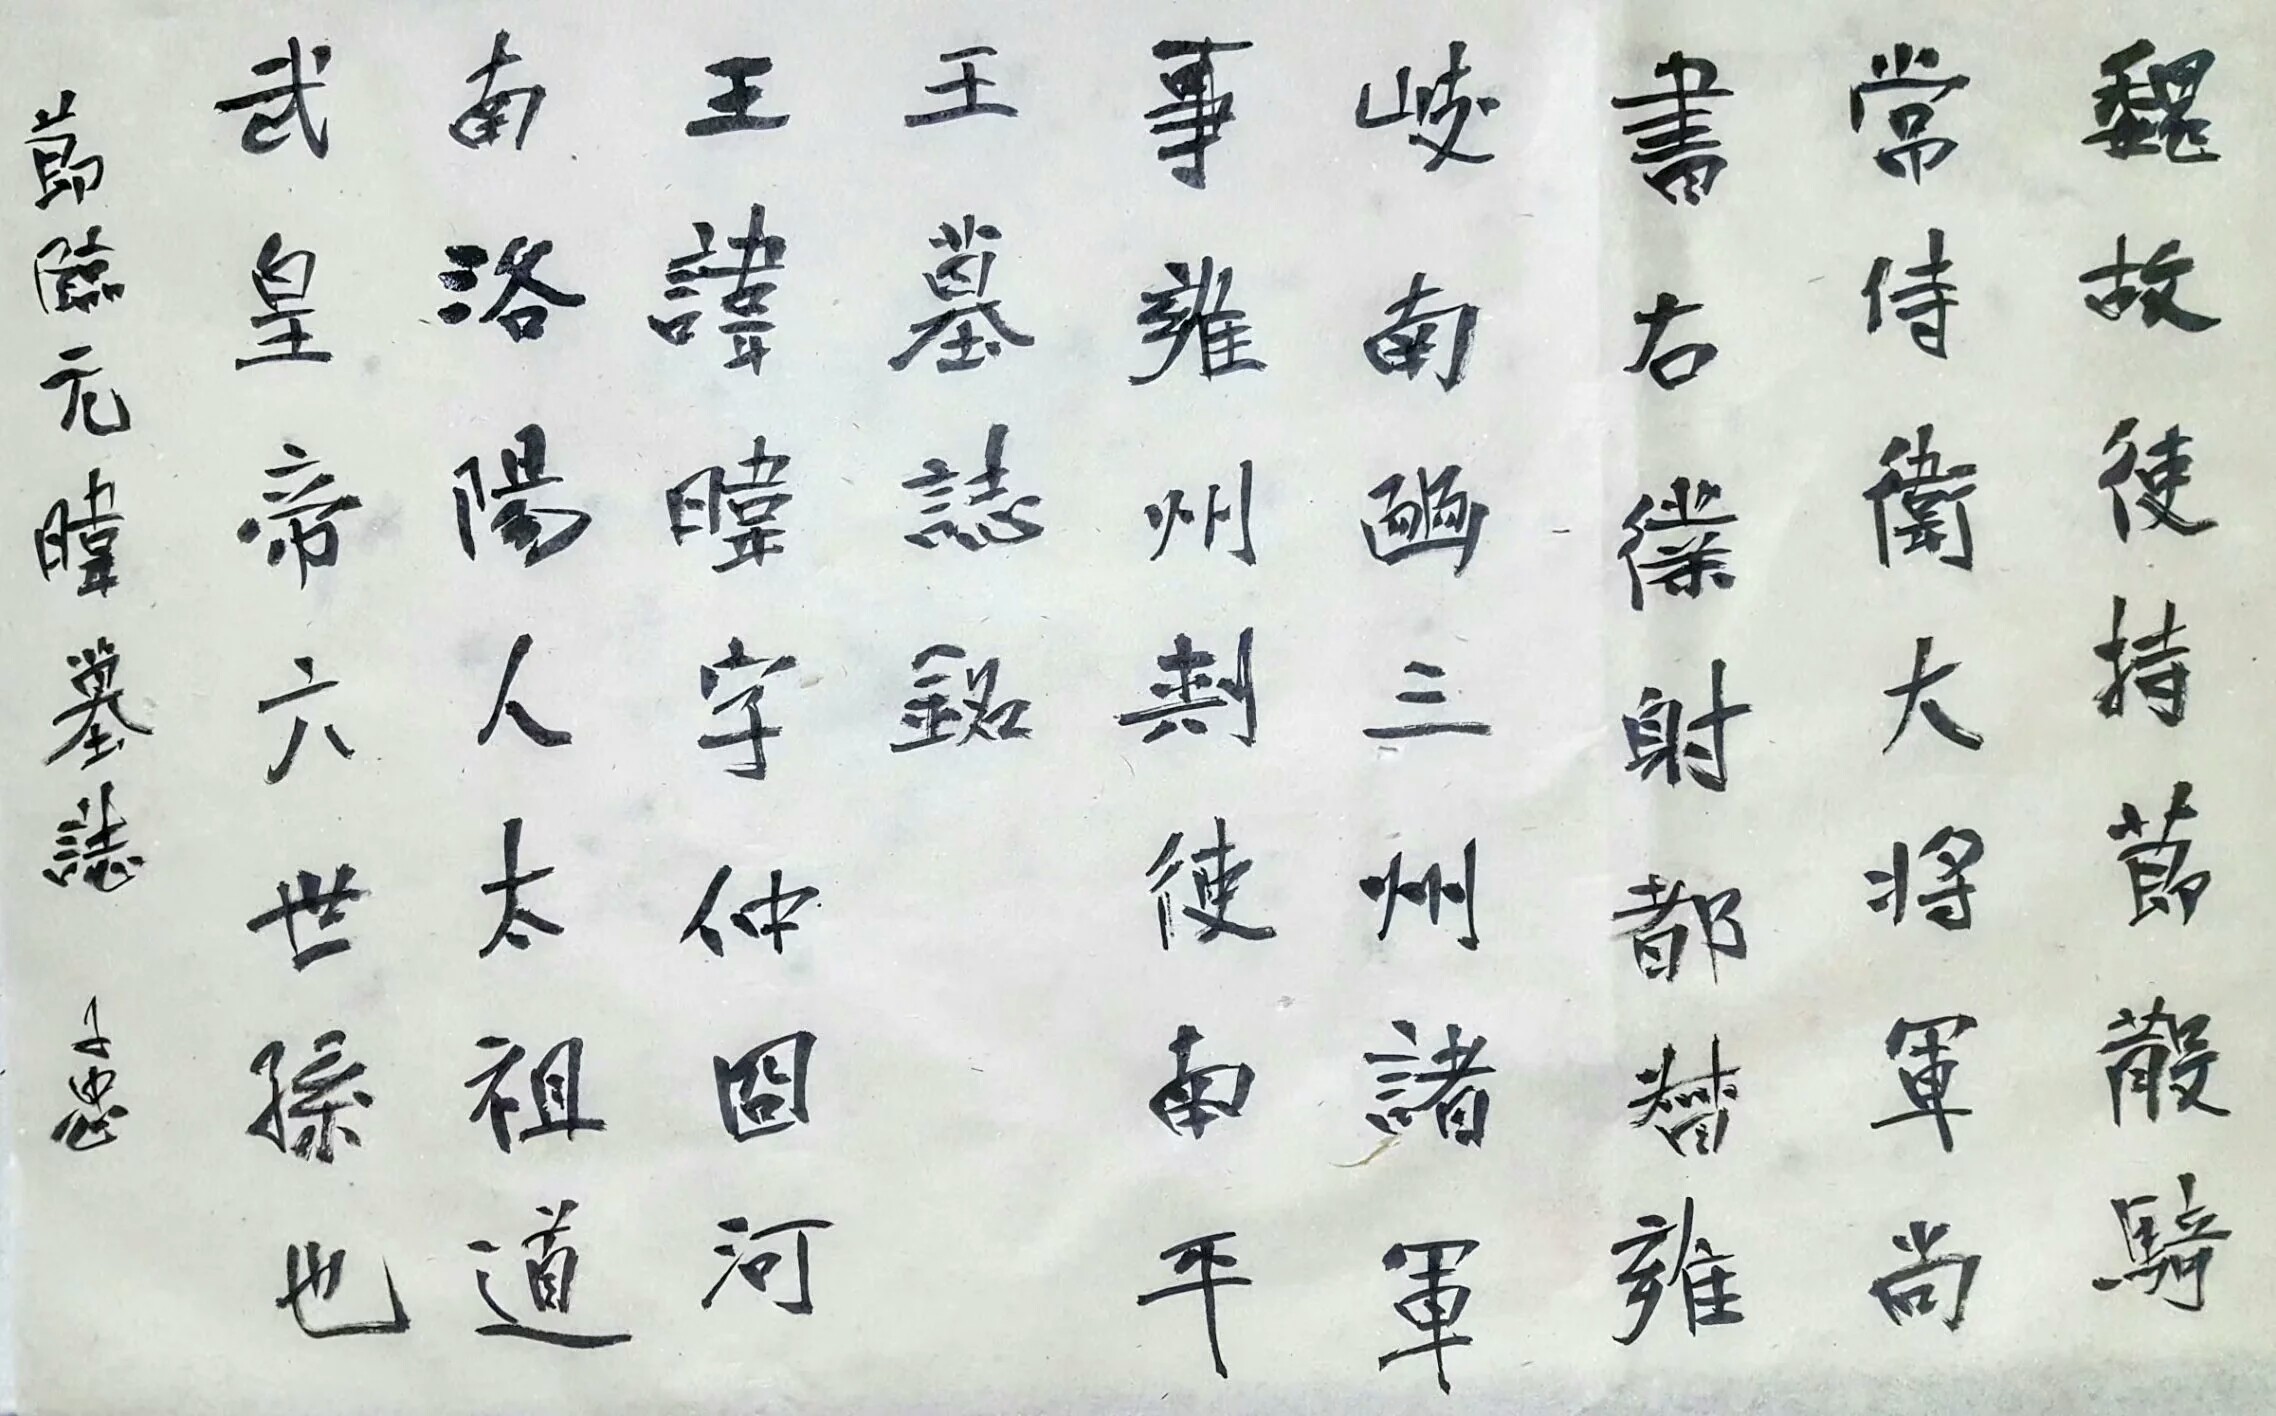 魏故使持莭散騎
常侍衛大将軍尚
書右僕射都督雍
岐南豳三州諸軍
事雍州刺使南平
王墓誌銘
王諱暐字仲囧河
南洛陽人太祖道
武皇帝六世孫也
莭臨元暐墓誌